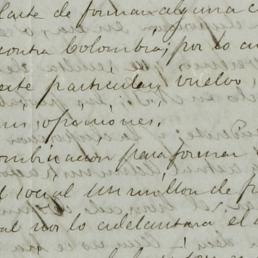 parte de formar alguna c
contra Colombia; por lo cu
este particular, vuelvo,
us opiniones.
ombinacion para formar
l social un millon de fr
al nos lo adelantará el